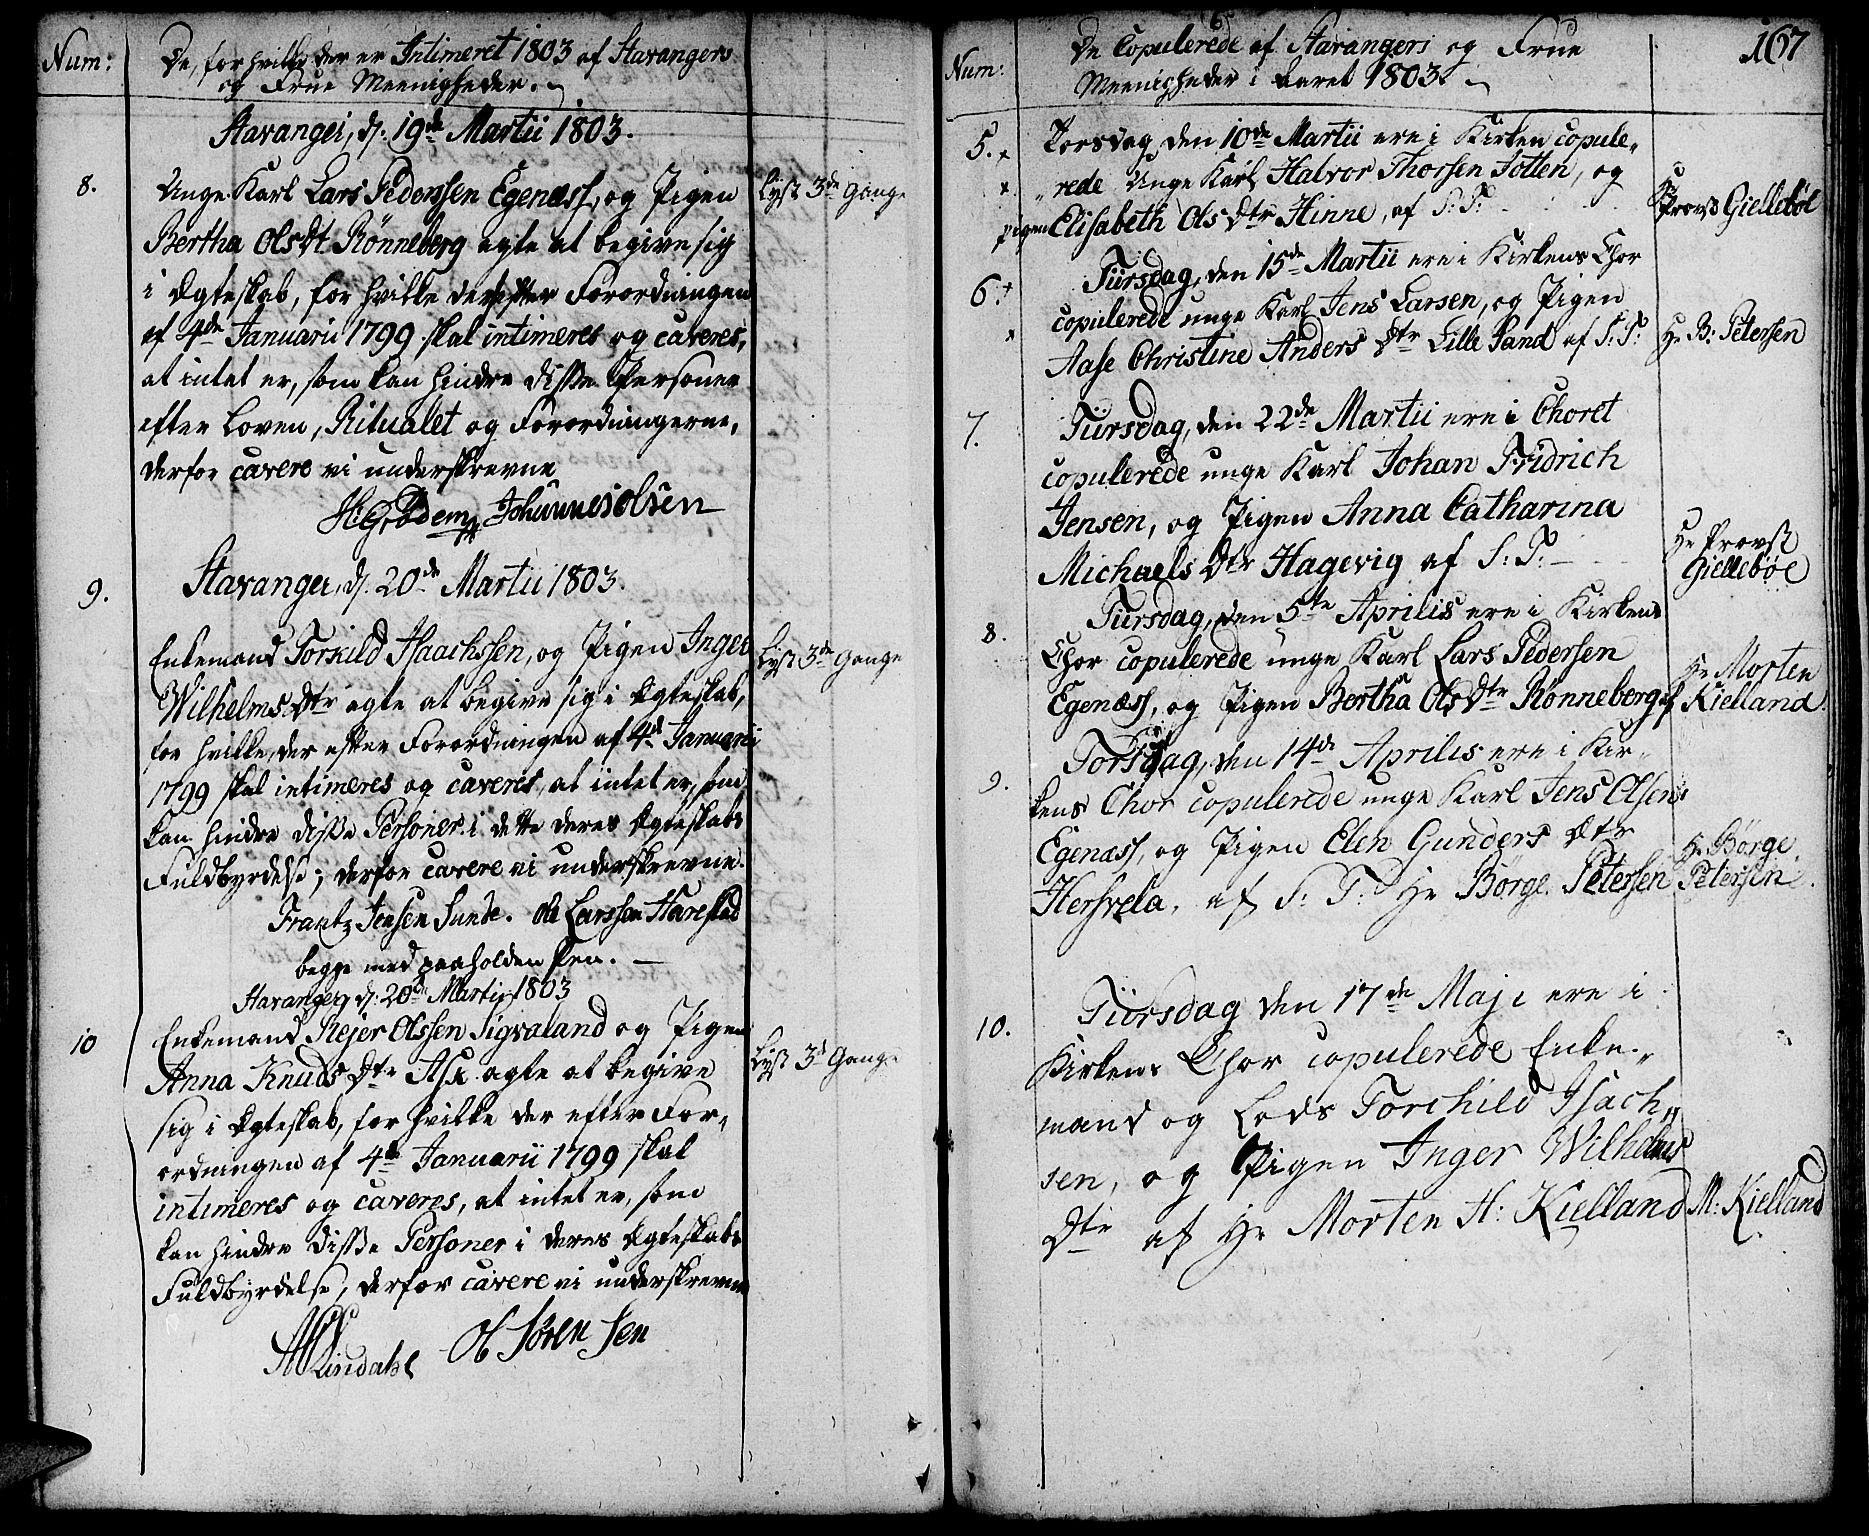 Num:
De, for hvilke der er Intimeret 1803 af Stavangers
og Frue Meenigheder.
Stavanger, d: 19de Martii 1803.
8.
Unge Karl Lars Pedersen Egenæss, og Pigen
Bertha Olsdt Rønneberg agte at begive sig
i Ægteskab, for hvilke der efter Forordningen
af 4de Januarii 1799 skal intimeres og caveres,
at intet er, som kan hindre disse Personer
efter Loven, Ritualet og Forordningerne,
derfor cavere vi underskrevne
Johannes Olsen
lyst 3de Gange
Stavanger, d. 20de Martii 1803.
9.
Enkemand Torkild Isaachsen, og Pigen Inger
Wilhelms Dtr agte at begive sig i Ægteskab,
for hvilke, der efter Forordningen af 4d Januarii
1799 skal intimeres og caveres, at intet er, som
kan hindre disse Personer i dette deres Ægteskabs
Fuldbyrdelse; derfor cavere vi underskrevne.
Frantz Jensen Sunde. Ole Larssen Harestad
begge med paaholden Pen.
lyst 3de Gange
Stavanger, d: 20de Martii 1803
10
Enkemand Rejer Olssen Sigvaland og Pigen
Anna Knuds Dtr Ask agte at begive
sig i Ægteskab, for hvilke der efter For„
ordningen af 4de Januarii 1799 skal
intimeres og caveres, at intet er, som
kan hindre disse Personer i deres Ægteskabs
Fuldbyrdelse, derfor cavere vi underskrevne
Lindahl Ol Sørensen
lyst 3d Gange
167
Num:
De Copulerede af Stavangers og Frue
Meenigheder i Aaret 1803.
5.
Torsdag den 10de Martii ere i Kirken copule„
„rede Unge Karl Halvor Thorsen Totten, og
pigen Elisabeth Ols Dtr Hinne, af S: T:
Hr Provst Giellebøl
6.
Tiirsdag, den 15de Martii ere i Kirkens Chor
copulerede unge Karl Jens Larsen, og Pigen
Aase Christine Anders Dtr Lille Sand af S: T:
Hr B: Petersen
7.
Tiirsdag, den 22de Martii ere i Choret
copulerede unge Karl Johan Fridrich
Jensen, og Pigen Anna Catharina
Michaels Dtr Hagevig af S: T:
Hr Provst
Giellebøl
8.
Tiirsdag, den 5te Aprilis ere i Kirkens
Chor copulerede unge Karl Lars Pedersen
Egenæss, og Pigen Bertha Ols Dtr Rønneberg af
Hr Morten
Kielland
9.
Torsdag, den 14de Aprilis ere i Kir„
kens Chor copulerede unge Karl Jens Olsen
Egenæss, og Pigen Elen Gunders Dtr
Hersvela, af S: T: Hr Børge Petersen
Hr Børge
Petersen
10.
Tiirsdag den 17de Maji ere i
Kirkens Chor copulerede Enke„
mand og Lods Torchild Isach„
sen, og Pigen Inger Wilhelms
Dtr af Hr Morten H: Kielland
M: Kielland